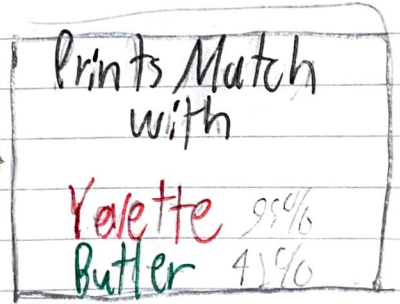 Prints Match
with
Yevette 99%
Butler 41%